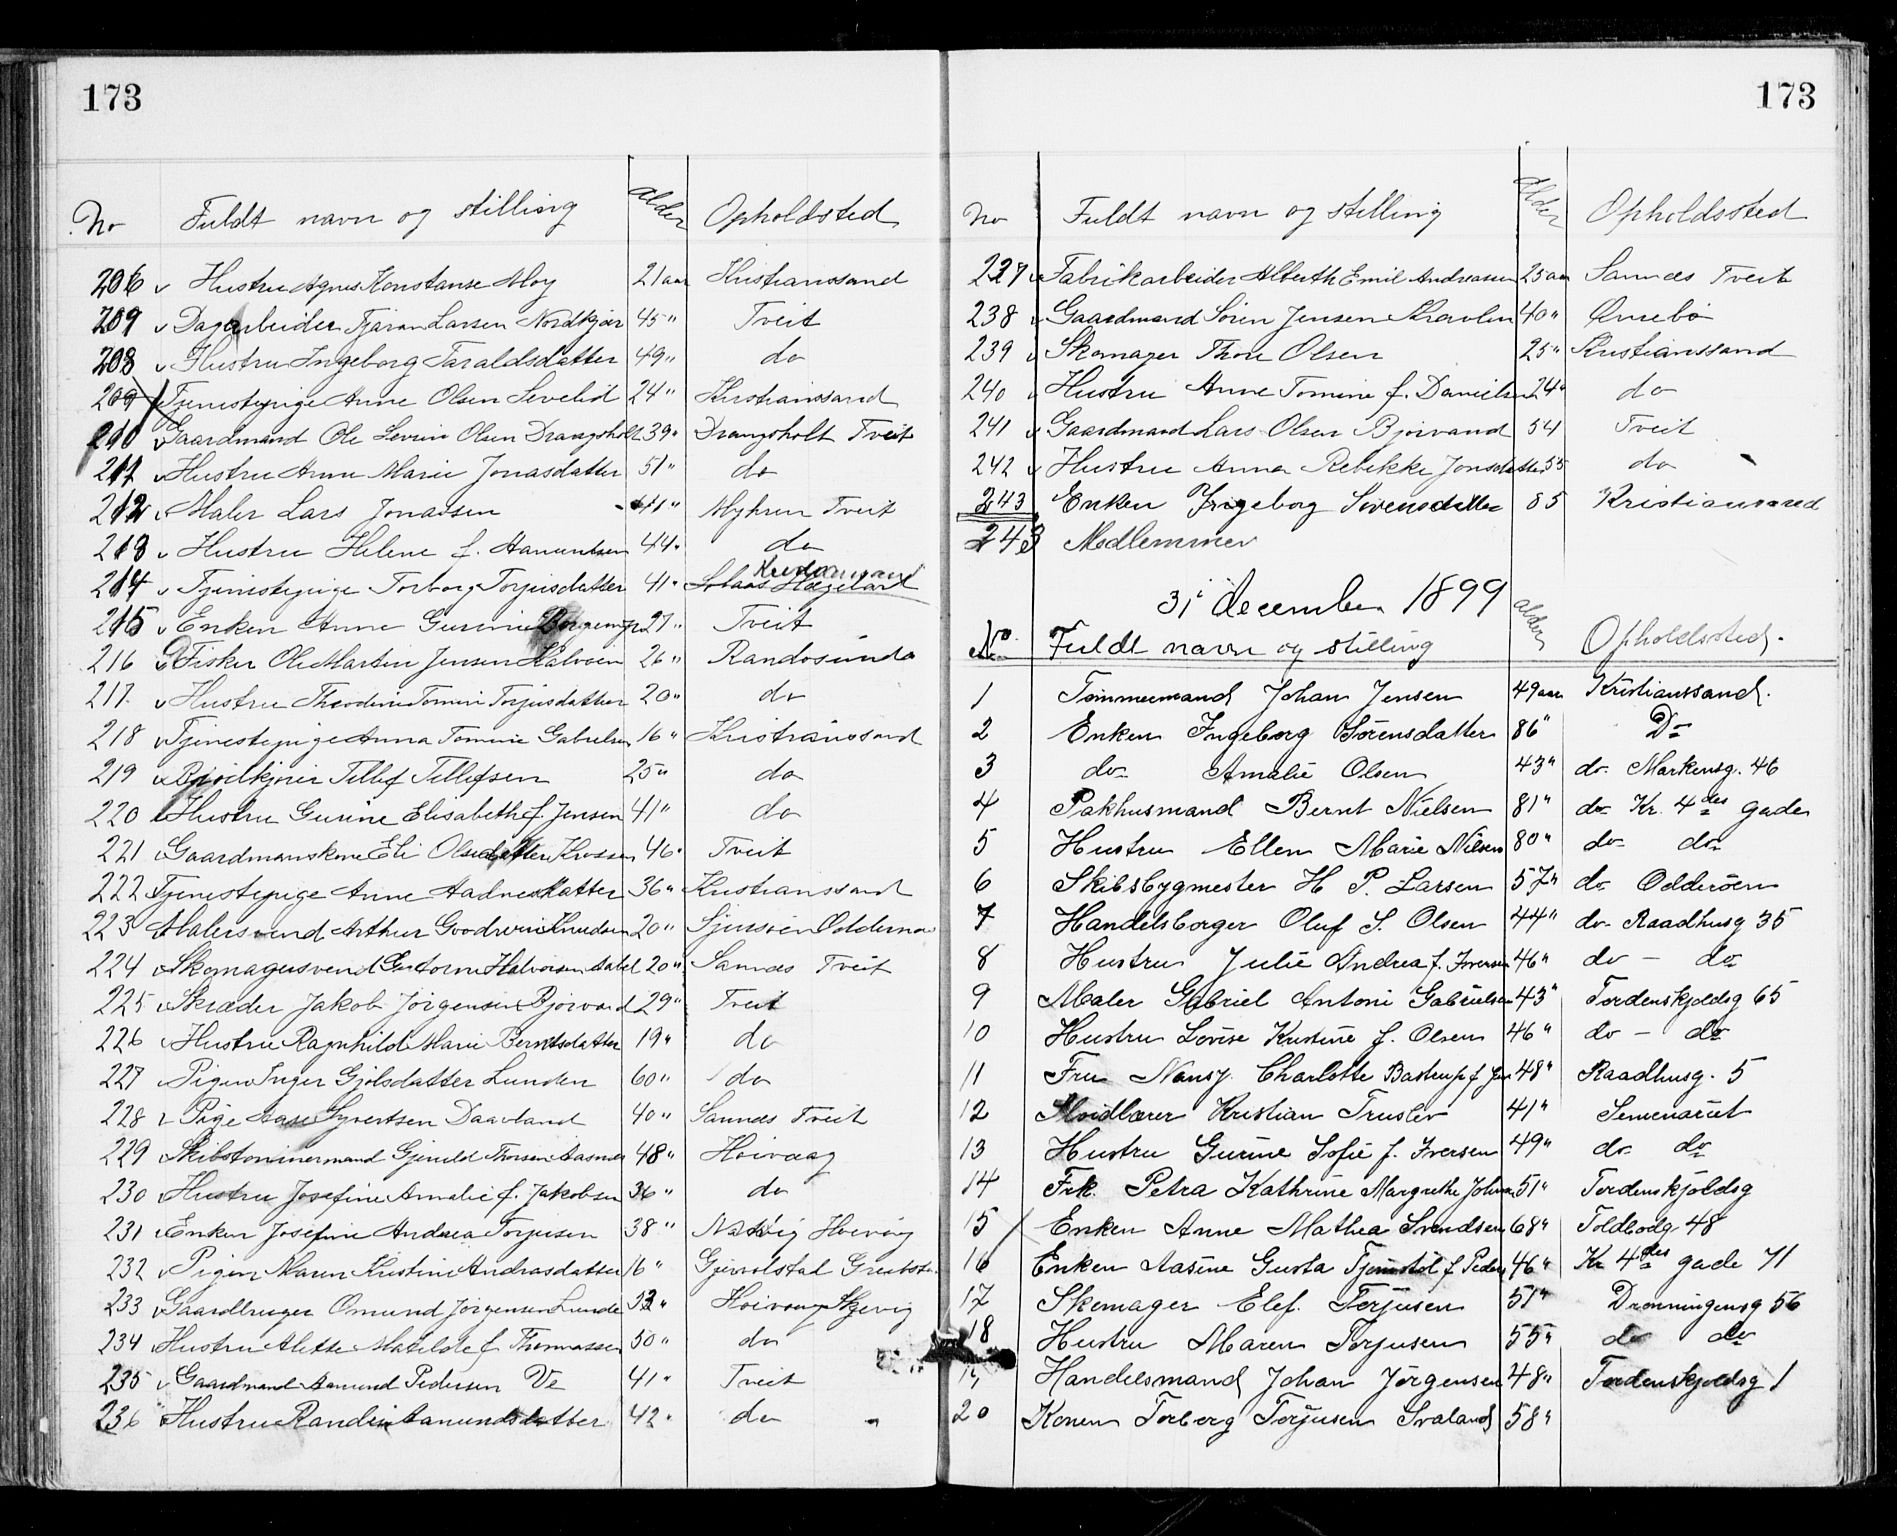 173
No Fuldt navn og stilling alder Opholdsted
206 v Hustru Agnes Konstanse Moy 21 aar Kristianssand
209 v Dagarbeider Tjøran Larsen Nordkjær 45 " Tveit
208 v Hustru Ingeborg Taraldsdatter 49 " do
209 Tjenestepige Anne Olsen Levelid 24 " Kristianssand
210 v Gaardmand Ole Severin Olsen Drangsholt 39 " Drangsholt Tveit
211 v Hustru Anne Marie Jonasdatter 51 " do
212 v Maler Lars Jonassen 41 " Myhren Tveit
213 v Hustru Helene f. Hanundsen 44 " do
214 v Tjenestepige Torborg Torjusdatter 41 " Hægeland
215 v Enken Anne Gurine 27 " Tveit
216 v Fisker Ole Martin Jensen Halvøen 26 " Randøsund
217. v Hustru Theodine Tomine Torjusdatter 20 " do
218 v Tjenestepige Anna Tomine Gabrielsen 16 " Kristianssand
219 v Brødkjører Tellef Tellefsen 25 " do
220 Hustru Gurine Elisabeth f. Jensen 41 " do
221 v Gaardmanskone Eli Olsdatter Krossen 46 " Tveit
222 Tjenestepige Anne Aadnesdatter 36 " Kristianssand
223 Malersvend Arthur Goodwin Knudsen 20 " Oddernes
224 v Skomagersvend Gustorm Halvorsen 20 " Sannes Tveit
225 v Skræder Jakob Jörgensen Bjorvand 29 " Tveit
226 v Hustru Ragnhild Marie Berntsdatter 19 " do
227 v Pigen Inger Gjölsdatter Lunden 60 " do
228 v Pige Aase Syvertsen Daavland 40 " Sannes Tveit
229 Skibstommermand Thorsen 48 " Høivaag
230 v Hustru Josefine Amalie f. Jakobsen 36 " do
231 v Enken Josefine Andrea Torjusen 38 " Høivåg
232 v Pigen Maren Kristine Andrasdatter 16 "
233 v Gaardbruger Omund Jørgensen Lunde 33 " Høivaag
234 Hustru Alette Matilde f Thomassen 50 " do
235 v Gaardmand Aamund Pedersen Ve 41 " Tveit
236 Hustru Randi Aanundsdatter 42 " do
173
No Fuldt navn og stilling Alder Opholdssted
237 v Fabrikarbeider Alberth Emil Andreassen 25 aar Sannes Tveit
238 v Gaardmand Sören Jensen 40 " Øvrebö
239 v Skomager Thore Olsen 25 " Kristianssand
240 v Hustru Anne Tomine f. Danielsen 24 " do
241 v Gaardmand Lars Olsen Bjorvand 54 Tveit
242 v Hustru Anna Rebekke Jonsdatter 55 do
243 Enken Ingeborg Sörensdatter 85 Kristianssand
243 Medlemmer
31 december 1899
No. Fuldt navn og stilling alder Opholdssted.
1 Tømmermand Johan Jensen 49 aar Kristianssand.
2 Enken Ingeborg Sörensdatter 86 " Do
3 do Amalie Olsen 43 " do. Markensg. 46
4 Pakhusmand Bernt Nielsen 81 " do Kr. 4des gade
5 Hustru Ellen Marie Nilsen 80 " do do
6 Skibsbygmester H P. Larsen 57 " do Odderöen
7 Handelsborger Oluf S. Olsen 44 " do Raadhusg 35
8 Hustru Julie Andrea f. Iversen 46 " do - do
9 Maler Gabriel Antoni Gabrielsen 43 " Tordenskjoldsg 65
10 Hustru Lovise Kristine f. Olsen 46 " do - do
11 Fru Nansy Charlotte Bastrup f 48 " Raadhusg. 5
12 Kristian Truslev 41 " Semenariet
13 Hustru Gurine Sofie f. Iversen 49 " do do
14 Frk. Petra Kathrine Margrethe 51 " Tordenskjoldsg
15 Enken Anne Mathea Svendsen 68 " Toldbodg. 48
16 Enken Aasine Gusta f Peders 46 " Kr 4des gade 71
17 Skomager Elef. Torjusen 51 " Dronningensg 56
18 Hustru Maren Torjusen 55 " do do
19 Handelsmand Johan Jörgensen 48 " Tordenskjoldsg 1
20 Konen Torberg Torjusen Svaland 58 "